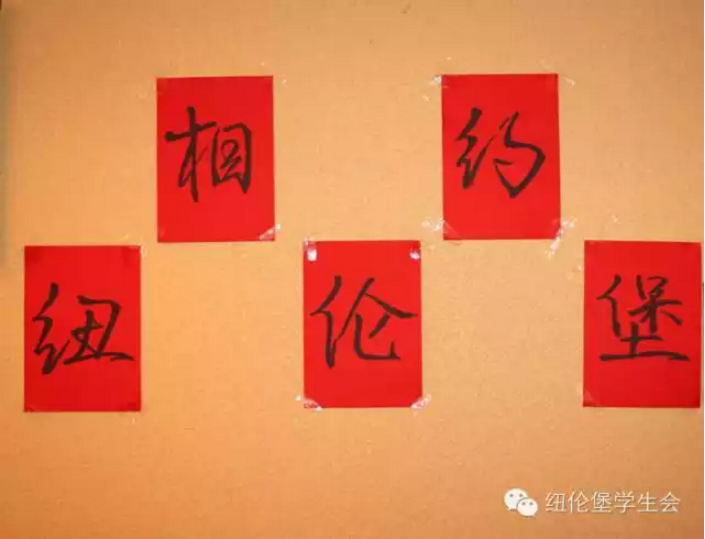 相约
纽伦堡
纽伦堡学生会